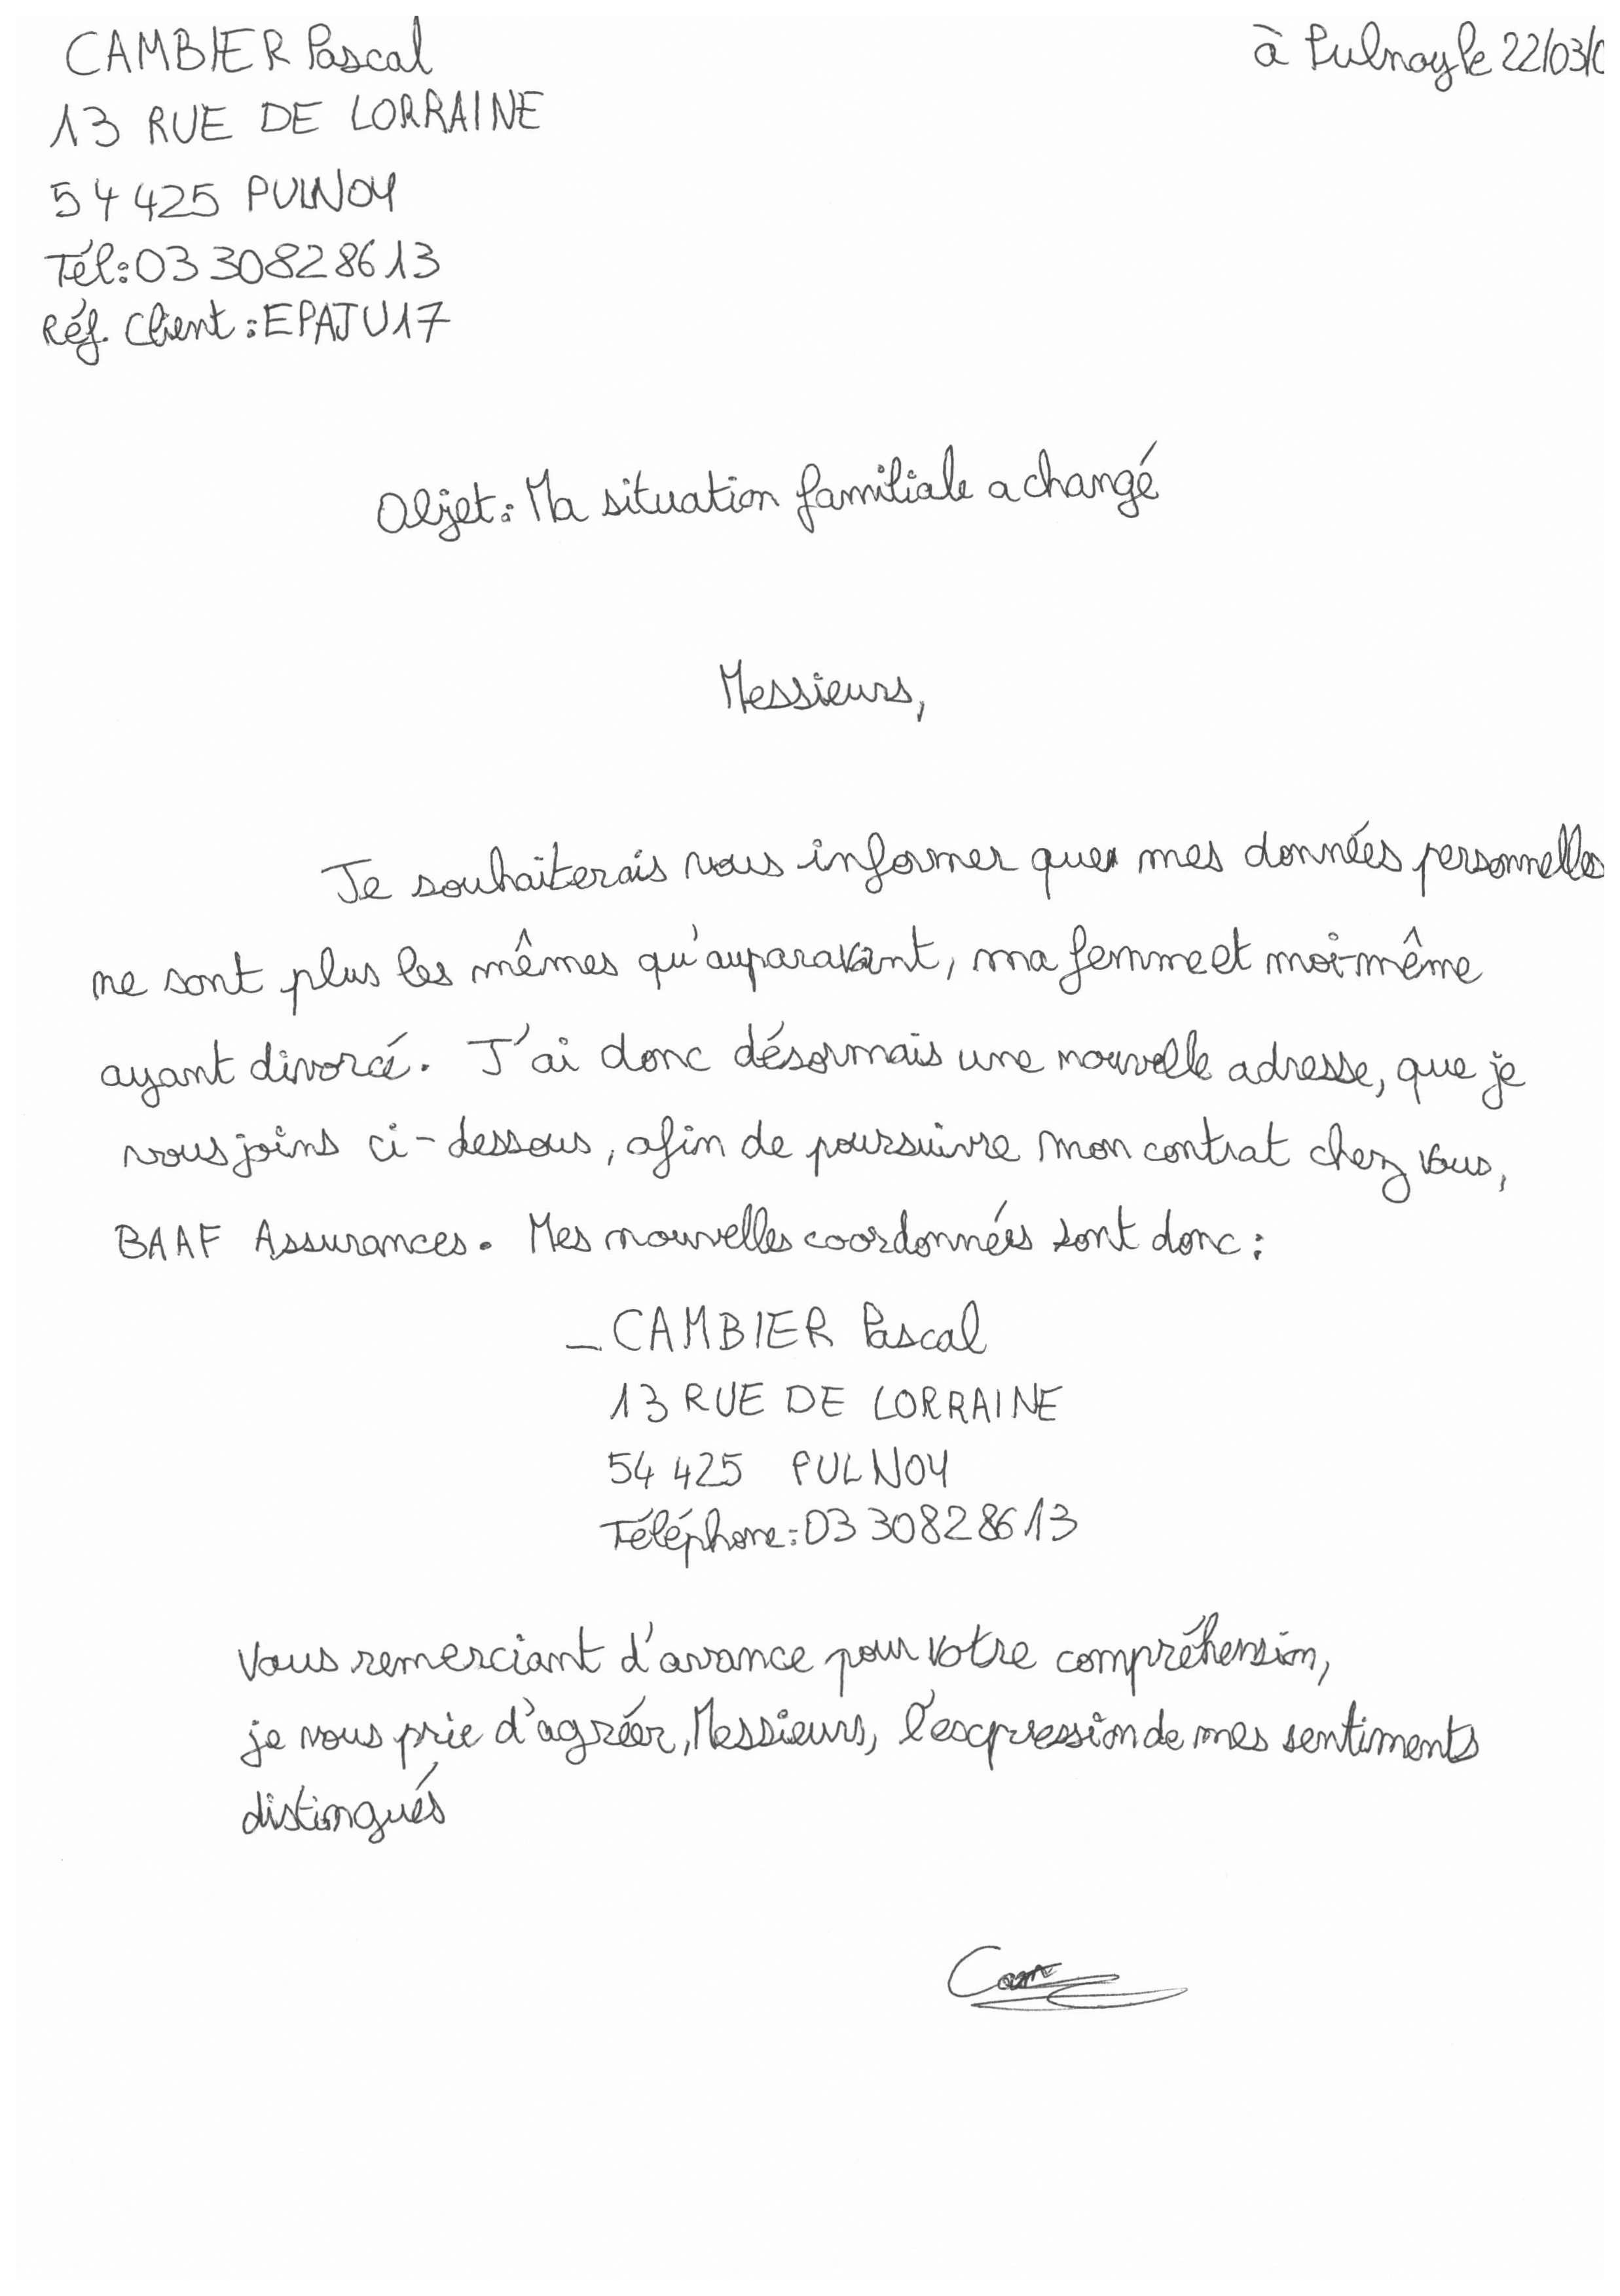 CAMBIER Pascal
à Pulnoy le 22/03/0
13 RUE DE LORRAINE
54 425 PULNOY
Tél: 03 30828613
Réf. Client : EPAJU17
Objet: Ma situation familiale a changé
Messieurs,
Je souhaiterais vous informer que mes données personnelles
ne sont plus les mêmes qu'auparavant, ma femme et moi-même
ayant divorcé. J'ai donc désormais une nouvelle adresse, que je
vous joins ci-dessous, afin de poursuivre mon contrat chez vous,
BAAF Assurances. Mes nouvelles coordonnées sont donc :
_ CAMBIER Pascal
13 RUE DE LORRAINE
54 425 PULNOY
Téléphone: 03 30828613
Vous remerciant d'avance pour votre compréhension,
je vous prie d'agréer, Messieurs, l'expression de mes sentiments
distingués